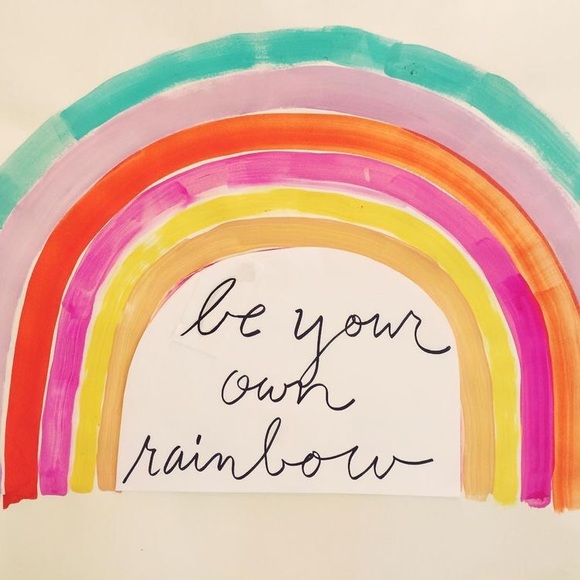 be your
own
rainbow